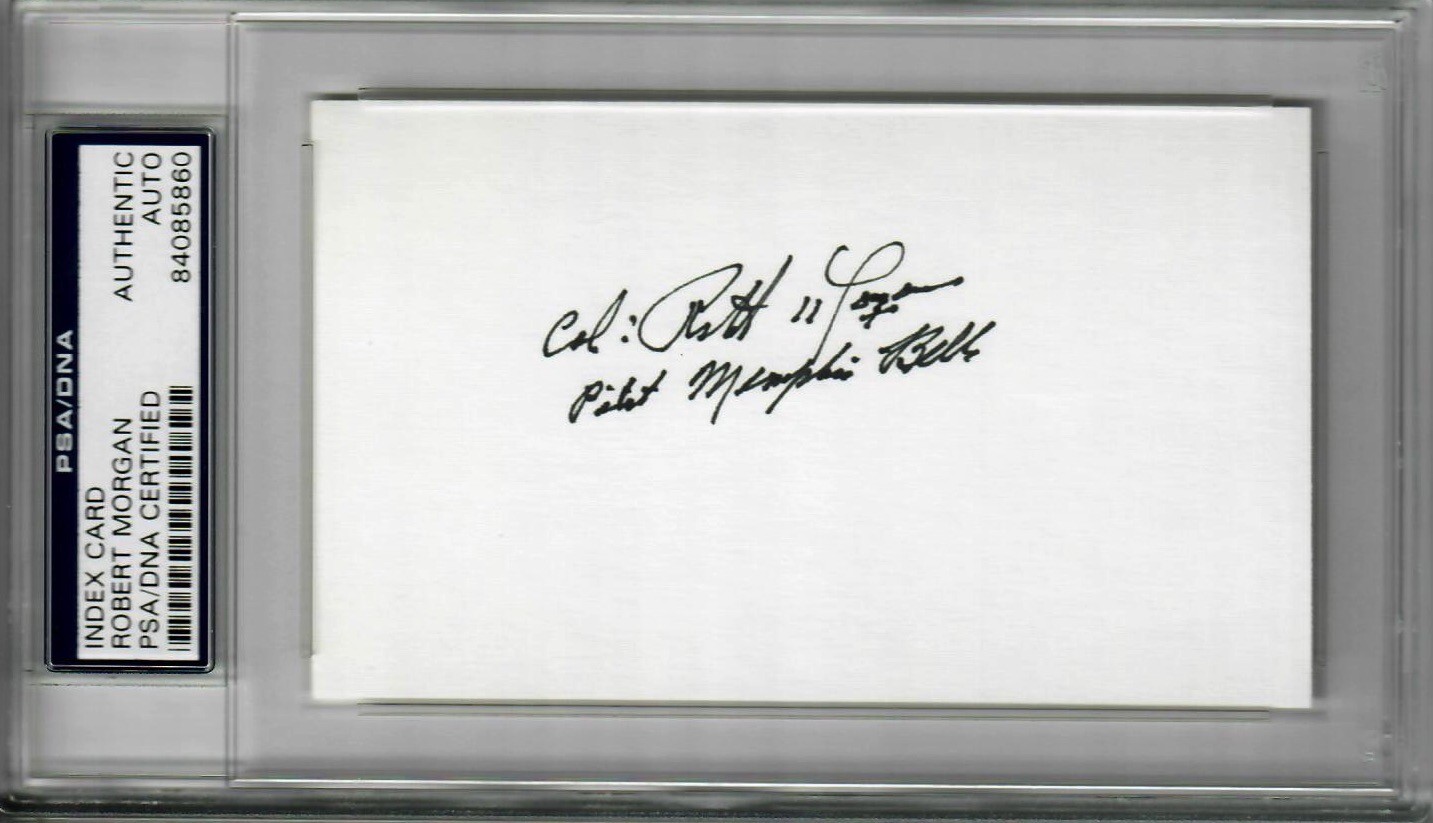 PSA/DNA
INDEX CARD
ROBERT MORGAN AUTHENTIC
PSA/DNA CERTIFIED AUTO
84085860
Col: Robt Morgan
Pilot Memphis Belle